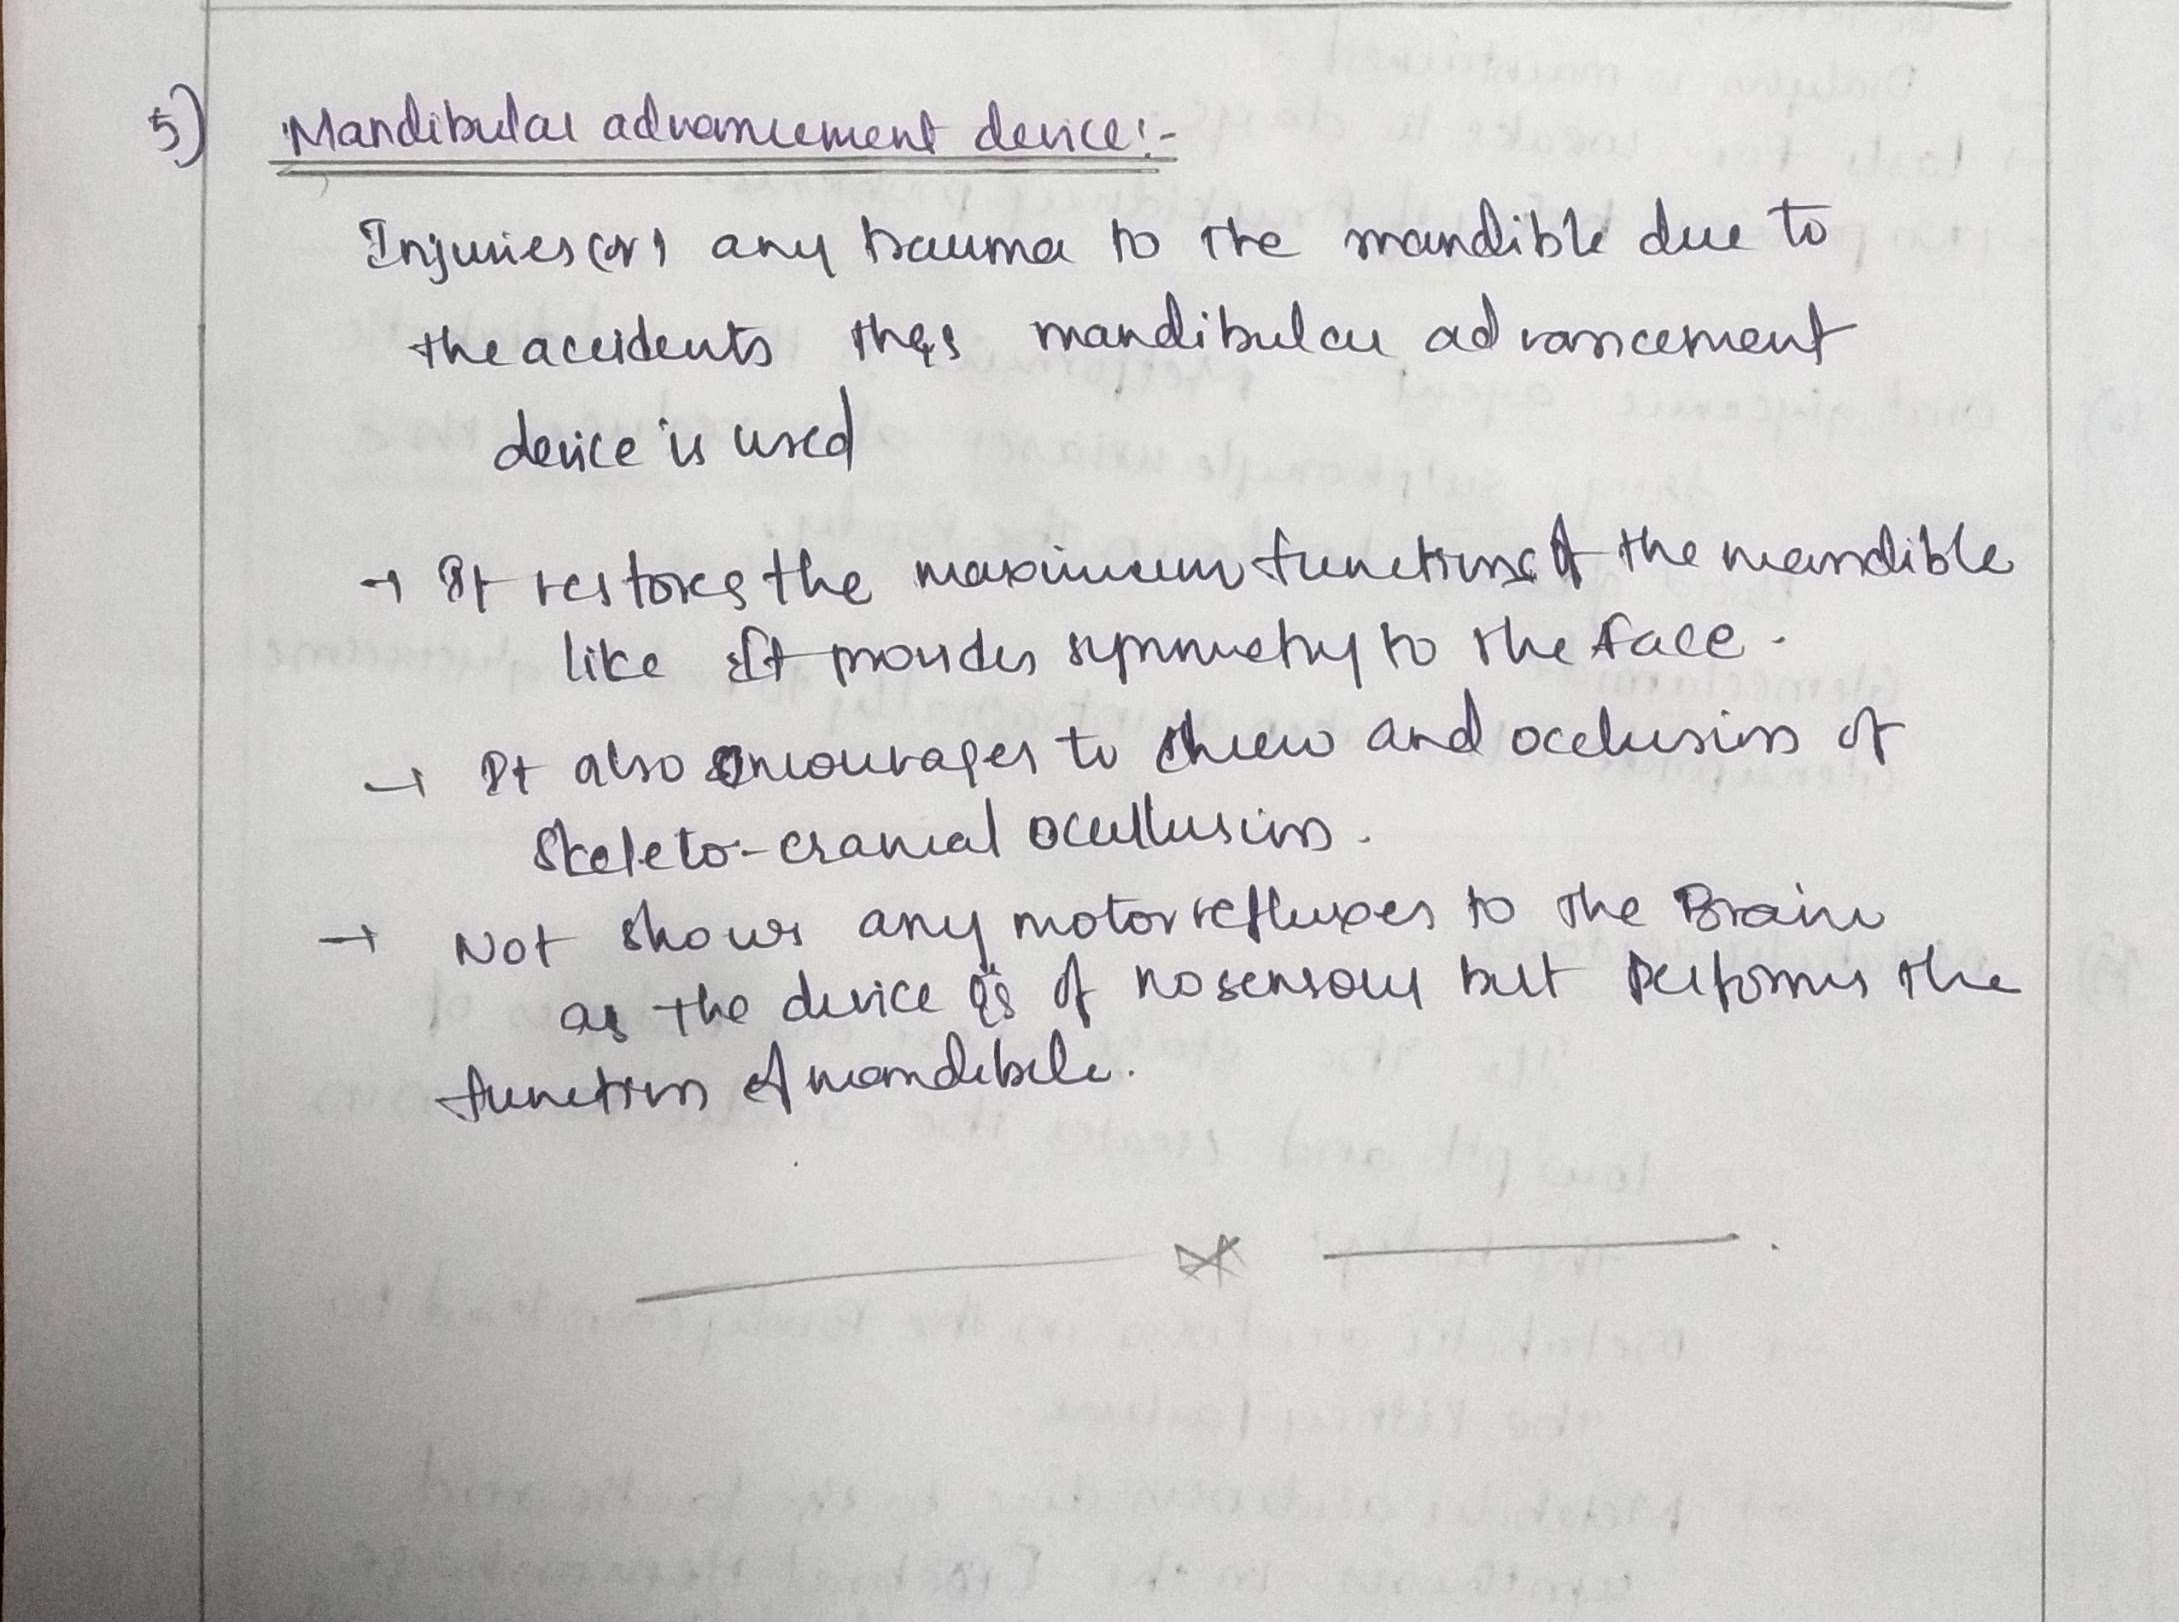 5) Mandibular advancement device:-
Injuries (or) any trauma to the mandible due to
the accidents this mandibular advancement
device is used
→ It restores the maximum functions of the mandible
like It provides symmetry to the face.
→ It also encourages to chew and occlusion of
skeleto-cranial occullusion.
→ Not shows any motor refluxes to the Brain
as the device is of no sensory but performs the
function of mandibele.